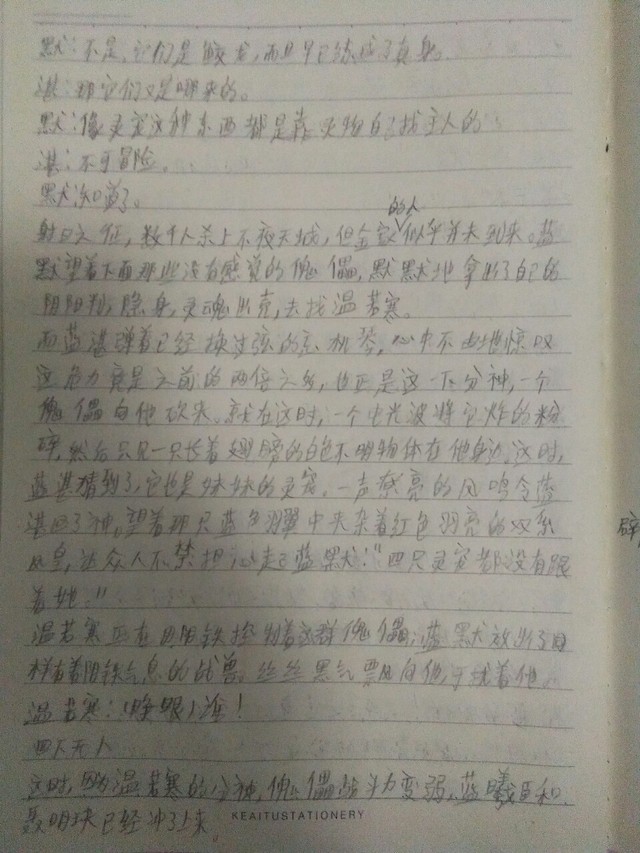 默:不是,它们是鲛龙,而且早已练成了真身。
湛:那它们又是哪来的。
默:像灵宠这种东西都是靠灵物自己找主人的
湛:不可冒险。
默:知道了。
的人
射日之征,数千人杀上不夜天城,但金家似乎并未到来。蓝
默望着下面那些没有感觉的傀儡,默默地拿出了自己的
阴阳,隐身,灵魂出壳,去找温若寒。
而蓝湛弹着已经换过弦的忘机琴,心中不由地惊叹
这危力竟是之前的两倍之多,也正是这一下分神,一个
傀儡向他砍来。就在这时,一个电光波将它炸的粉
碎,然后只见一只长着翅膀的白色不明物体在他身边,这时,
蓝湛猜到了,它也是妹妹的灵宠,一声嘹亮的凤鸣令蓝
湛回了神。望着那只蓝色羽翼中夹杂着红色羽亮的双系
凤皇,让众人不禁担心起了蓝默:"四只灵宠都没有跟
着她。"
温若寒正在用阴铁控制着这群傀儡,蓝默放出了同
样有着阴铁气息的战兽,丝丝黑气飘向他,干扰着他。
温若寒:(睁眼)谁!
四下无人
这时,因为温若寒的分神,傀儡战斗力变弱,蓝曦臣和
聂明玦已经冲了上来。
KEAITUSTATIONERY